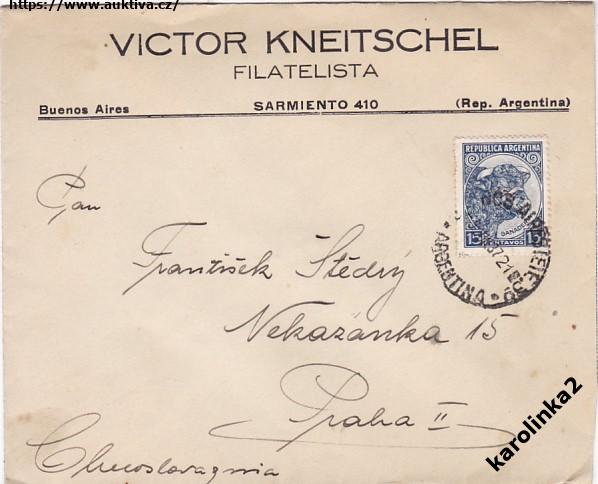 https://www.auktiva.cz/
VICTOR KNEITSCHEL
FILATELISTA
Buenos Aires SARMIENTO 410 (Rep. Argentina)
REPUBLICA ARGENTINA
15 CENTAVOS 15
ARGENTINA
Pan
František Štědrý
Nekázanka 15
Praha II
Checoslovaquia
karolinka2